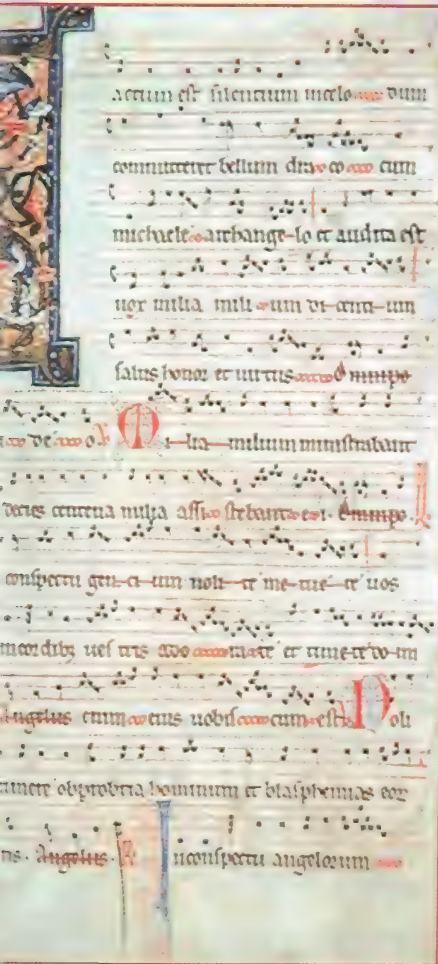 actum est silentium in celo dum
committeret bellum draco cum
michaele archange-lo et audita est
uox milia mili um di-centi-um
salus honor et uirtus omnipo
de o M i-lia-milium ministrabant
decies centena milia assi stebant ei. Omnipo
conspectu gen-ci-um noli-te me-tue-te uos
in cordibz ues tris ado rate et timete do-m
Angelus enim eius uobis cum est N oli
timere obprobria hominum et blasphemias eoz
Angelus. I n conspectu angelorum